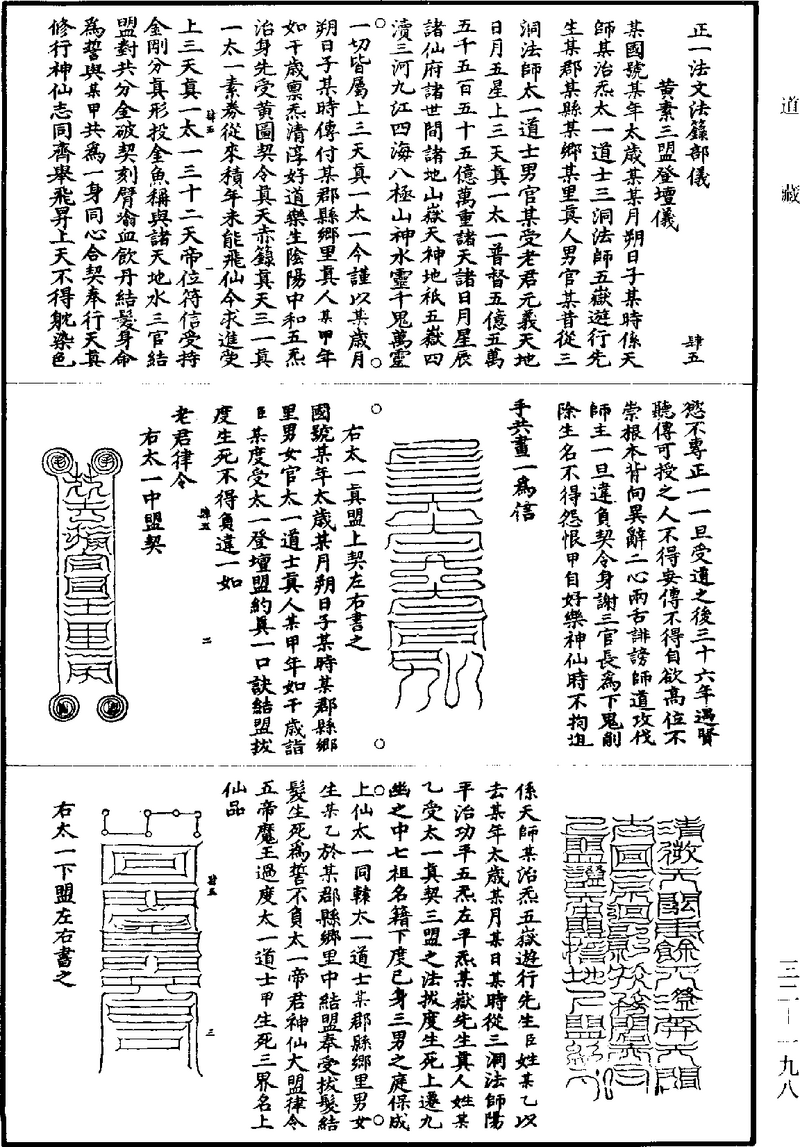 道藏
三二—一九八
正一法文法籙部儀
肆五
黃素三盟登壇儀
某國號某年太歲某某月朔日子某時係天
師某治炁太一道士三洞法師五嶽遊行先
生某郡某縣某鄉某里真人男官某昔從三
洞法師太一道士男官某受老君元義天地
日月五星上三天真一太一普督五億五萬
五千五百五十五億萬重諸天諸日月星辰
諸仙府諸世間諸地山嶽天神地祇五嶽四
瀆三河九江四海八極山神水靈千鬼萬靈
一切皆屬上三天真一太一今謹以某歲月
朔日子某時傳付某郡縣鄉里真人某甲年
如干歲稟炁清淳好道樂生陰陽中和五炁
治身先受黃圖契令真天赤籙真天三一真
一太一素券從來積年未能飛仙今求進受
肆五
一
上三天真一太一三十二天帝位符信受持
金剛分真形投金魚稱與諸天地水三官結
盟對共分全破契刻臂歃血飲丹結髮身命
為誓與某甲共為一身同心合契奉行天真
修行神仙志同齊舉飛昇上天不得躭染色
慾不專正一一旦受道之後三十六年遇賢
聽傳可授之人不得妄傳不得自欲高位不
崇根本背向異辭二心兩舌誹謗師道攻伐
師主一旦違負契令身謝三官長為下鬼削
除生名不得怨恨甲自好樂神仙時不拘迫
手共畫一為信
右太一真盟上契左右書之
國號某年太歲某月朔日子某時某郡縣鄉
里男女官太一道士真人某甲年如干歲詣
臣某度受太一登壇盟約真一口訣結盟拔
度生死不得負違一如
肆五
二
老君律令
右太一中盟契
係天師某治炁五嶽遊行先生臣姓某乙以
去某年太歲某月某日某時從三洞法師陽
平治功平五炁左平炁某嶽先生真人姓某
乙受太一真契三盟之法拔度生死上遷九
幽之中七祖名籍下度己身三男之庭保成
上仙太一同轅太一道士某郡縣鄉里男女
生某乙於某郡縣鄉里中結盟奉受拔髮結
髮生死為誓不負太一帝君神仙大盟律令
五帝魔王過度太一道士甲生死三界名上
仙品
肆五
三
右太一下盟左右書之